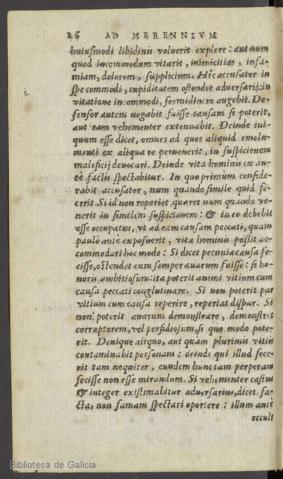 26 AD HERENNIVM
huiusmodi libidinis voluerit explere: aut num
quod incommodum vitarit, inimicitias, infa-
miam, dolorem, supplicium. Hîc accusator in
spe commodi, cupiditatem ostendet aduersarij: in
vitatione incommodi, formidinem augebit. De-
fensor autem negabit fuisse causam si poterit,
aut eam vehementer extenuabit. Deinde ini-
quum esse dicet, omnes ad quos aliquid emolu-
menti ex aliqua re peruenerit, in suspicionem
maleficij deuocari. Deinde vita hominis ex an-
te factis spectabitur. In quo primùm conside-
rabit accusator, num quando simile quid fe-
cerit. Si id non reperiet, quæret num quando ve-
nerit in similem suspicionem: & in eo debebit
esse occupatus, vt ad eam causam peccati, quam
paulò antè exposuerit, vita hominis possit ac-
commodari hoc modo: Si dicet pecuniæ causa fe-
cisse, ostendet eum semper auarum fuisse: si ho-
noris, ambitiosum: ita poterit animi vitium cum
causa peccati conglutinare. Si non poterit par
vitium cum causa reperire, reperiat dispar. Si
non poterit auarum demonstrare, demonstret
corruptorem, vel perfidiosum, si quo modo pote-
rit. Denique aliquo, aut quàm plurimis vitiis
contaminabit personam: deinde qui illud fece-
rit tam nequiter, eundem hunc tam perperam
fecisse non esse mirandum. Si vehementer castus
& integer existimabitur aduersarius, dicet fa-
cta, non famam spectari oportere: illum antè
occult
Biblioteca de Galicia